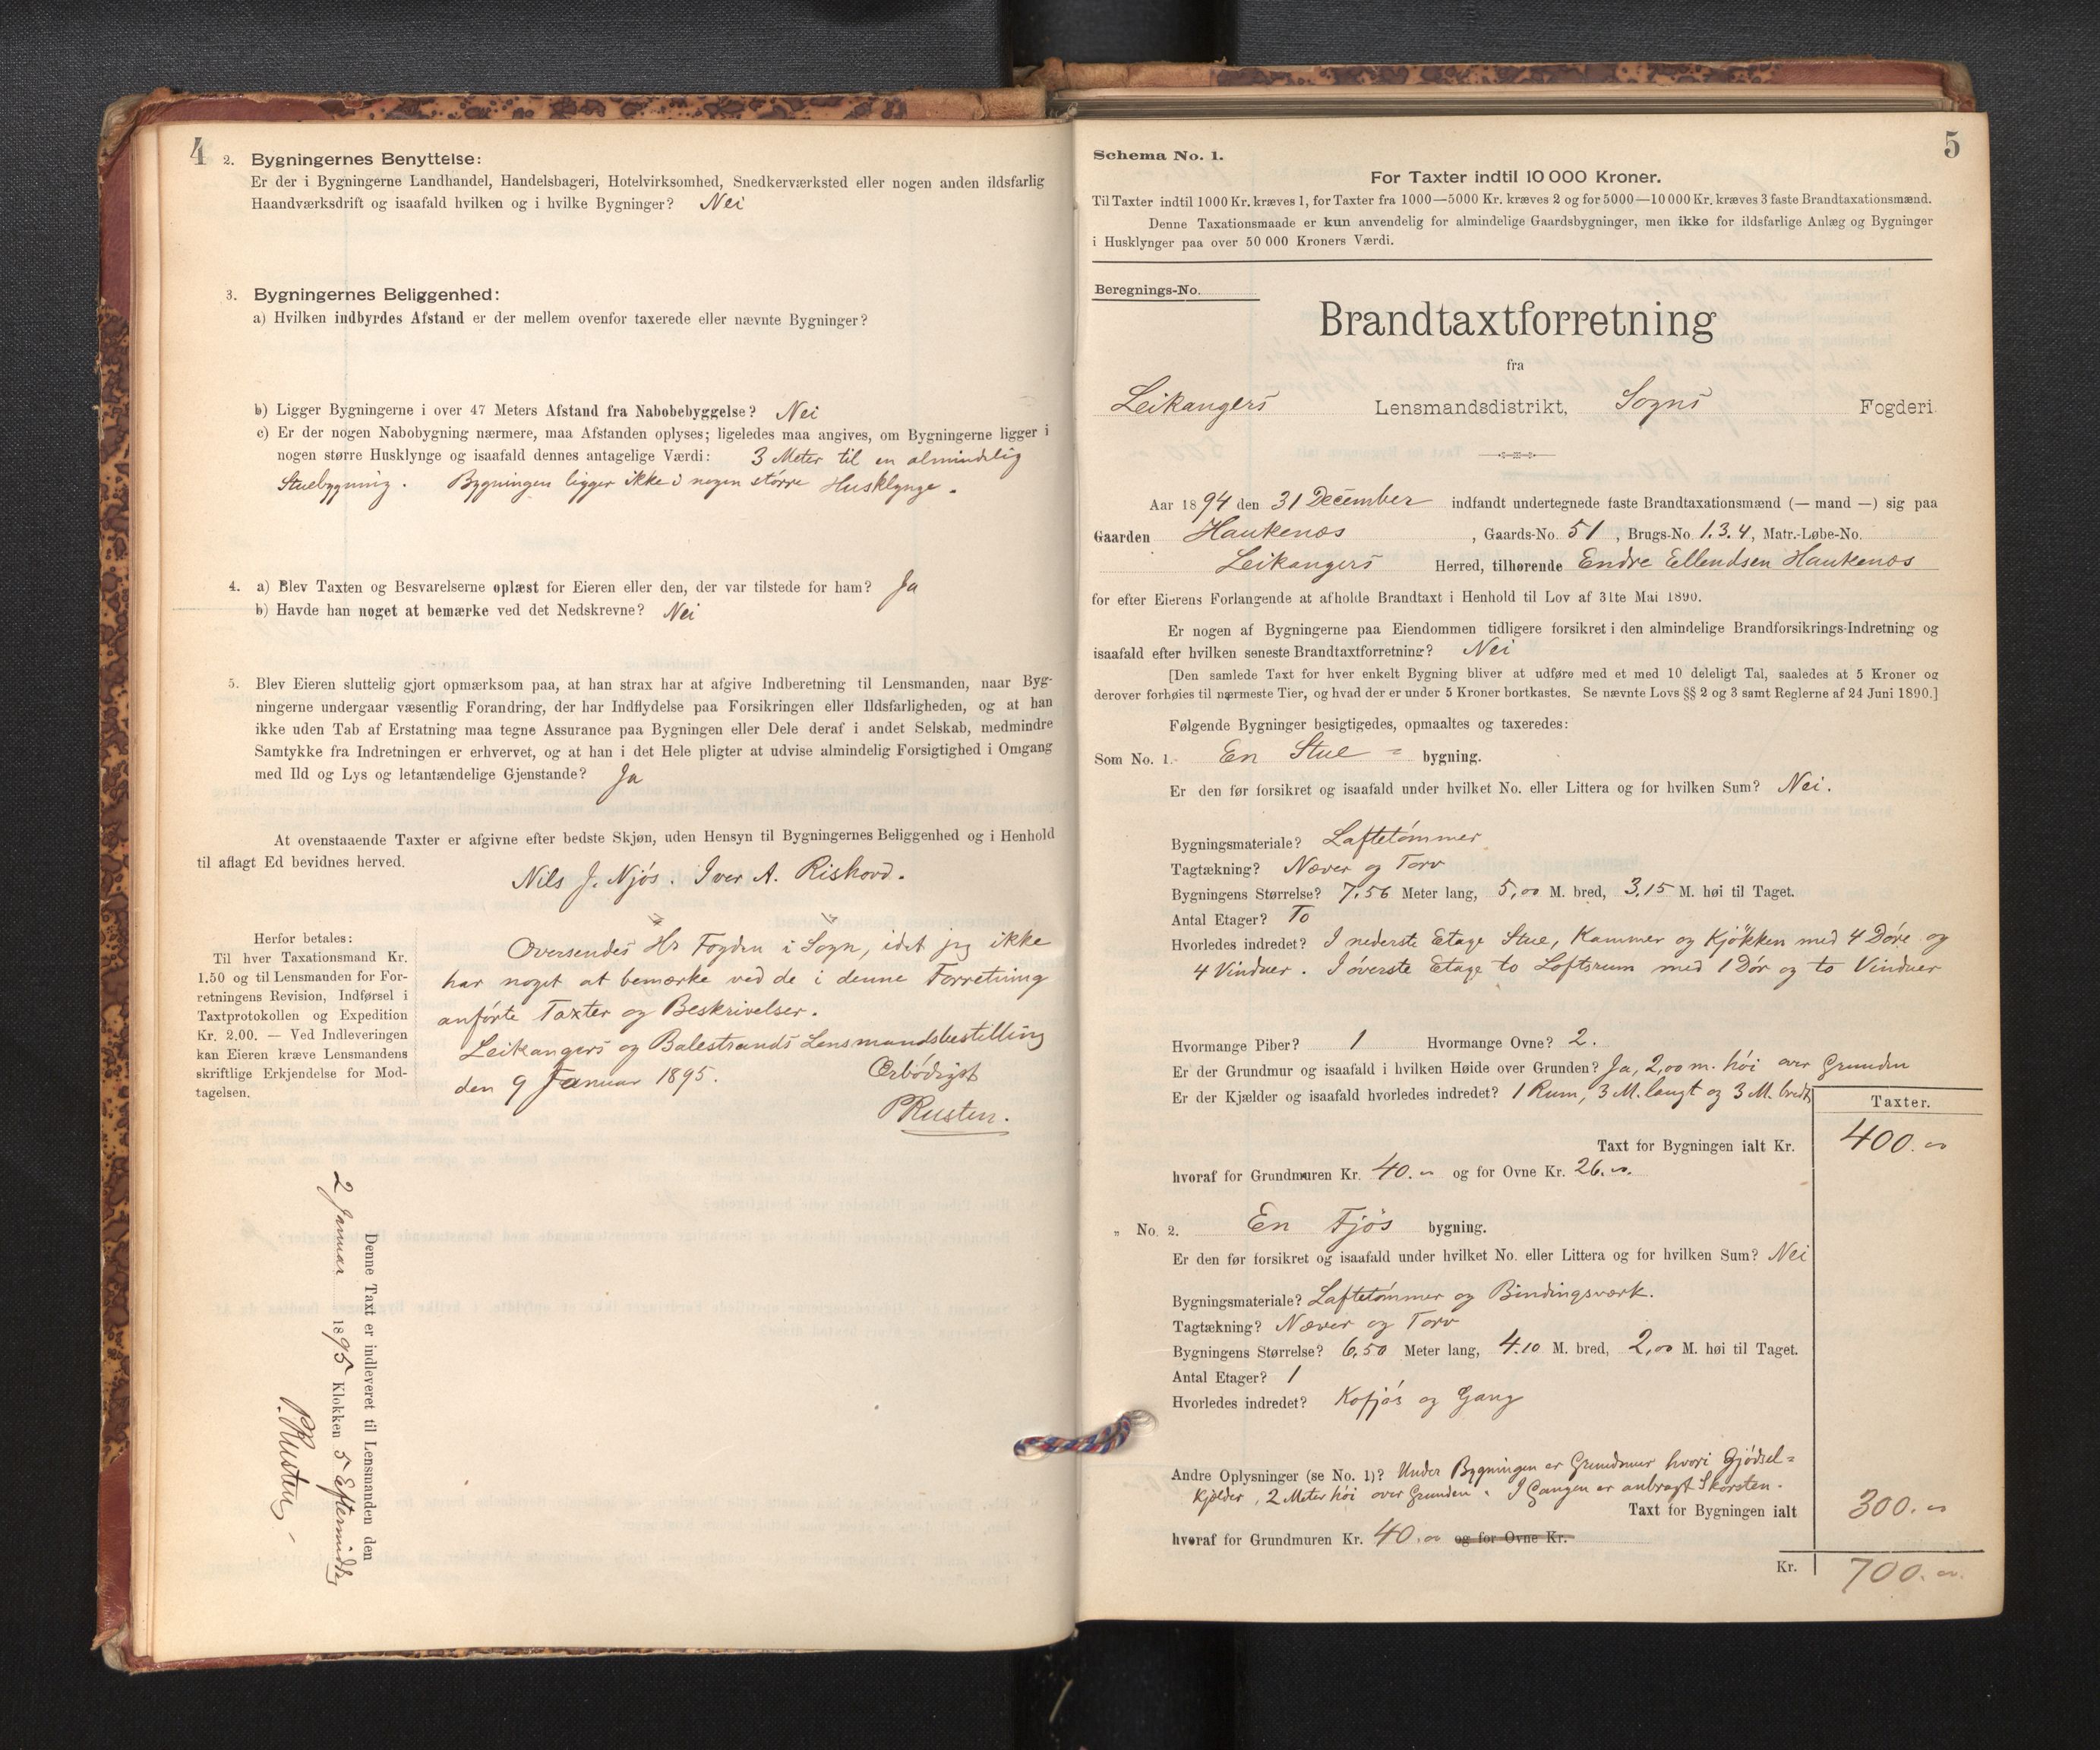 4
2. Bygningernes Benyttelse:
Er der i Bygningerne Landhandel, Handelsbageri, Hotelvirksomhed, Snedkerværksted eller nogen anden ildsfarlig
Haandværksdrift og isaafald hvilken og i hvilke Bygninger? Nei
3. Bygningernes Beliggenhed:
a) Hvilken indbyrdes Afstand er der mellem ovenfor taxerede eller nævnte Bygninger?
b) Ligger Bygningerne i over 47 Meters Afstand fra Nabobebyggelse? Nei
c) Er der nogen Nabobygning nærmere, maa Afstanden oplyses; ligeledes maa angives, om Bygningerne ligger i
nogen større Husklynge og isaafald dennes antagelige Værdi: 3 Meter til en almindelig
Stuebygning. Bygningen ligger ikke i nogen større Husklynge.
4. a) Blev Taxten og Besvarelserne oplæst for Eieren eller den, der var tilstede for ham? Ja
b) Havde han noget at bemærke ved det Nedskrevne? Nei
5. Blev Eieren sluttelig gjort opmærksom paa, at han strax har at afgive Indberetning til Lensmanden, naar Byg-
ningerne undergaar væsentlig Forandring, der har Indflydelse paa Forsikringen eller Ildsfarligheden, og at han
ikke uden Tab af Erstatning maa tegne Assurance paa Bygningen eller Dele deraf i andet Selskab, medmindre
Samtykke fra Indretningen er erhvervet, og at han i det Hele pligter at udvise almindelig Forsigtighed i Omgang
med Ild og Lys og letantændelige Gjenstande? Ja
At ovenstaaende Taxter er afgivne efter bedste Skjøn, uden Hensyn til Bygningernes Beliggenhed og i Henhold
til aflagt Ed bevidnes herved.
Nils J. Njøs. Iver A. Riskovd.
Herfor betales:
Til hver Taxationsmand Kr.
1.50 og til Lensmanden for For-
retningens Revision, Indførsel i
Taxtprotokollen og Expedition
Kr. 2.00. — Ved Indleveringen
kan Eieren kræve Lensmandens
skriftlige Erkjendelse for Mod-
tagelsen.
Oversendes Hr Fogden i Sogn, idet jeg ikke
har noget at bemærke ved de i denne Forretning
anførte Taxter og Beskrivelser.
Leikangers og Balestrands Lensmandsbestilling
den 9 Januar 1895.
Ærbødigst
PRusten.
Denne Taxt er indleveret til Lensmanden den
2 Januar 1895 Klokken 5 Eftermiddag
P.Rusten
5
Schema No. 1.
For Taxter indtil 10 000 Kroner.
Til Taxter indtil 1000 Kr. kræves 1, for Taxter fra 1000—5000 Kr. kræves 2 og for 5000—10 000 Kr. kræves 3 faste Brandtaxationsmænd.
Denne Taxationsmaade er kun anvendelig for almindelige Gaardsbygninger, men ikke for ildsfarlige Anlæg og Bygninger
i Husklynger paa over 50 000 Kroners Værdi.
Beregnings-No.
Brandtaxtforretning
fra
Leikangers Lensmandsdistrikt, Sogns Fogderi
Aar 1894 den 31 December indfandt undertegnede faste Brandtaxationsmænd (— mand —) sig paa
Gaarden Haukenæs, Gaards-No. 51, Brugs-No. 1.3.4, Matr.-Løbe-No.
Leikangers Herred, tilhørende Endre Ellendsen Haukenæs
for efter Eierens Forlangende at afholde Brandtaxt i Henhold til Lov af 31te Mai 1890.
Er nogen af Bygningerne paa Eiendommen tidligere forsikret i den almindelige Brandforsikrings-Indretning og
isaafald efter hvilken seneste Brandtaxtforretning? Nei
[Den samlede Taxt for hver enkelt Bygning bliver at udføre med et med 10 deleligt Tal, saaledes at 5 Kroner og
derover forhøies til nærmeste Tier, og hvad der er under 5 Kroner bortkastes. Se nævnte Lovs §§ 2 og 3 samt Reglerne af 24 Juni 1890.]
Følgende Bygninger besigtigedes, opmaaltes og taxeredes:
Som No. 1. En Stue = bygning.
Er den før forsikret og isaafald under hvilket No. eller Littera og for hvilken Sum? Nei.
Bygningsmateriale? Laftetømmer
Tagtækning? Næver og Torv
Bygningens Størrelse? 7,56 Meter lang, 5,00 M. bred, 3,15 M. høi til Taget.
Antal Etager? To
Hvorledes indredet? I nederste Etage Stue, Kammer og Kjøkken med 4 Døre og
4 Vinduer. I øverste Etage to Loftsrum med 1 Dør og to Vinduer
Hvormange Piber? 1 Hvormange Ovne? 2.
Er der Grundmur og isaafald i hvilken Høide over Grunden? Ja, 2,00 m. høi over Grunden
Er der Kjælder og isaafald hvorledes indredet? 1 Rum, 3 M. langt og 3 M. bredt
Taxter.
Taxt for Bygningen ialt Kr. 400.00
hvoraf for Grundmuren Kr. 40.00 og for Ovne Kr. 26.00.
" No. 2. En Fjøs bygning.
Er den før forsikret og isaafald under hvilket No. eller Littera og for hvilken Sum? Nei
Bygningsmateriale? Laftetømmer og Bindingsværk.
Tagtækning? Næver og Torv
Bygningens Størrelse? 6,50 Meter lang, 4.10 M. bred, 2,00 M. høi til Taget.
Antal Etager? 1
Hvorledes indredet? Kofjøs og Gang
Andre Oplysninger (se No. 1)? Under Bygningen er Grundmur hvori Gjødsel=
kjelder, 2 Meter høi over Grunden. I Gangen er anbragt Skorsten.
Taxt for Bygningen ialt 300.00
hvoraf for Grundmuren Kr. 40.00 og for Ovne Kr.
Kr. 700.00